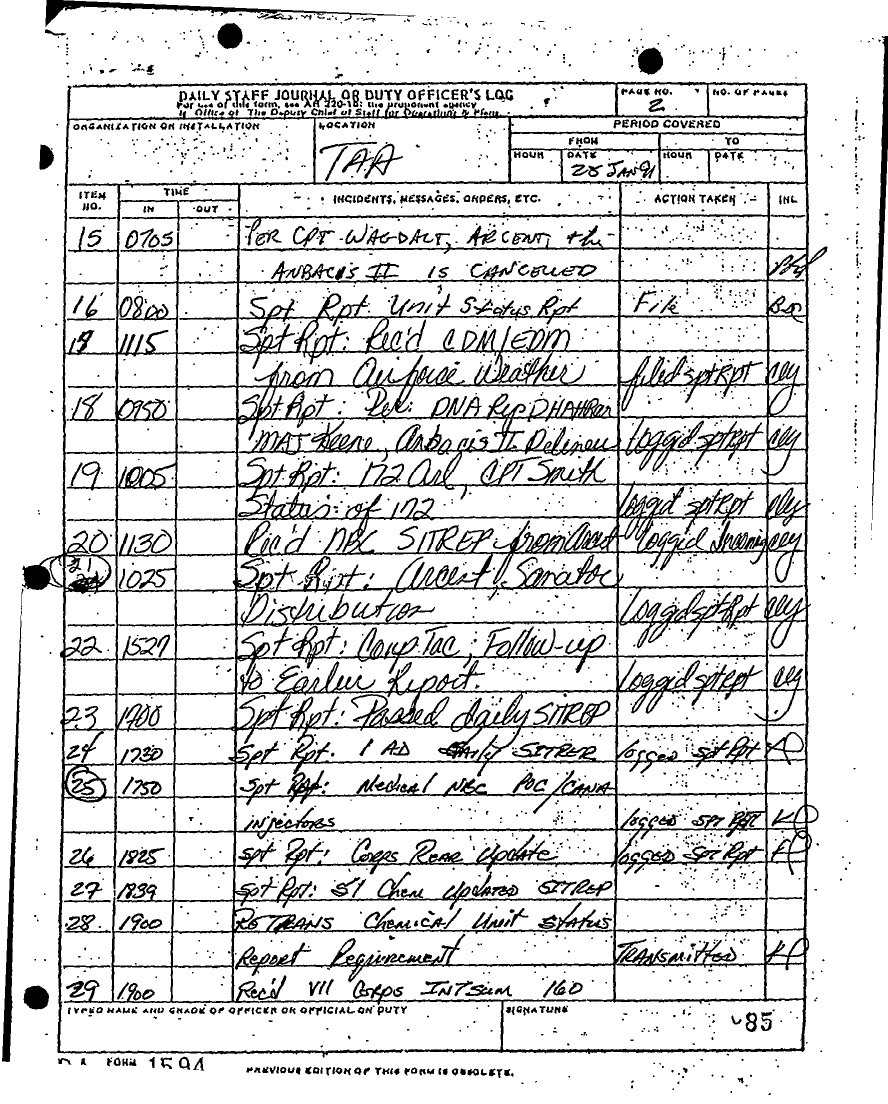 DAILY STAFF JOURNAL OR DUTY OFFICER'S LOG
For use of this form, see AR 220-15; the proponent agency
is Office of The Deputy Chief of Staff for Operations & Plans.
PAGE NO.
2
NO. OF PAGES
ORGANIZATION OR INSTALLATION
LOCATION
TAA
PERIOD COVERED
FROM
TO
HOUR
DATE
HOUR
DATE
28 JAN 91
ITEM NO.
TIME
IN
OUT
INCIDENTS, MESSAGES, ORDERS, ETC.
ACTION TAKEN
INL
15 0705 PER CPT WAGDALT, ARCENT, the
ANBACIS II IS CANCELLED
16 0800 Spt Rpt. Unit Status Rpt File
1115 Spt Rpt: Rec'd CDM/EDM
from Airforce Weather filed spt Rpt
18 0950 Spt Rpt: Rec: DNA Rep DHAHRan
MAJ Keene, Anbacis II logged spt rpt
19 1005 Spt Rpt: 172 CPT Smith
Status of 172 logged spt Rpt
20 1130 Rec'd NBC SITREP from Arcent logged Incoming
21 1025 Spt Rpt: Arcent,
Distribution logged spt Rpt
22 1527 Spt Rpt: Corp Tac, Follow-up
to Earlier Report. logged spt rpt
23 1700 Spt Rpt: Passed daily SITREP
24 1730 Spt Rpt. 1 AD daily SITREP logged spt Rpt
25 1750 Spt Rpt: Medical NBC POC/CANA
injectors logged SPT RPT
26 1825 Spt Rpt: Corps Rear Update logged Spt Rpt
27 1839 Spt Rpt: 51 Chem Updated SITREP
28 1900 RETRANS Chemical Unit Status
Report Requirement TRANSmitted
29 1900 Rec'd VII Corps INTSum 160
TYPED NAME AND GRADE OF OFFICER OR OFFICIAL ON DUTY
SIGNATURE
85
DA FORM 1594
PREVIOUS EDITION OF THIS FORM IS OBSOLETE.